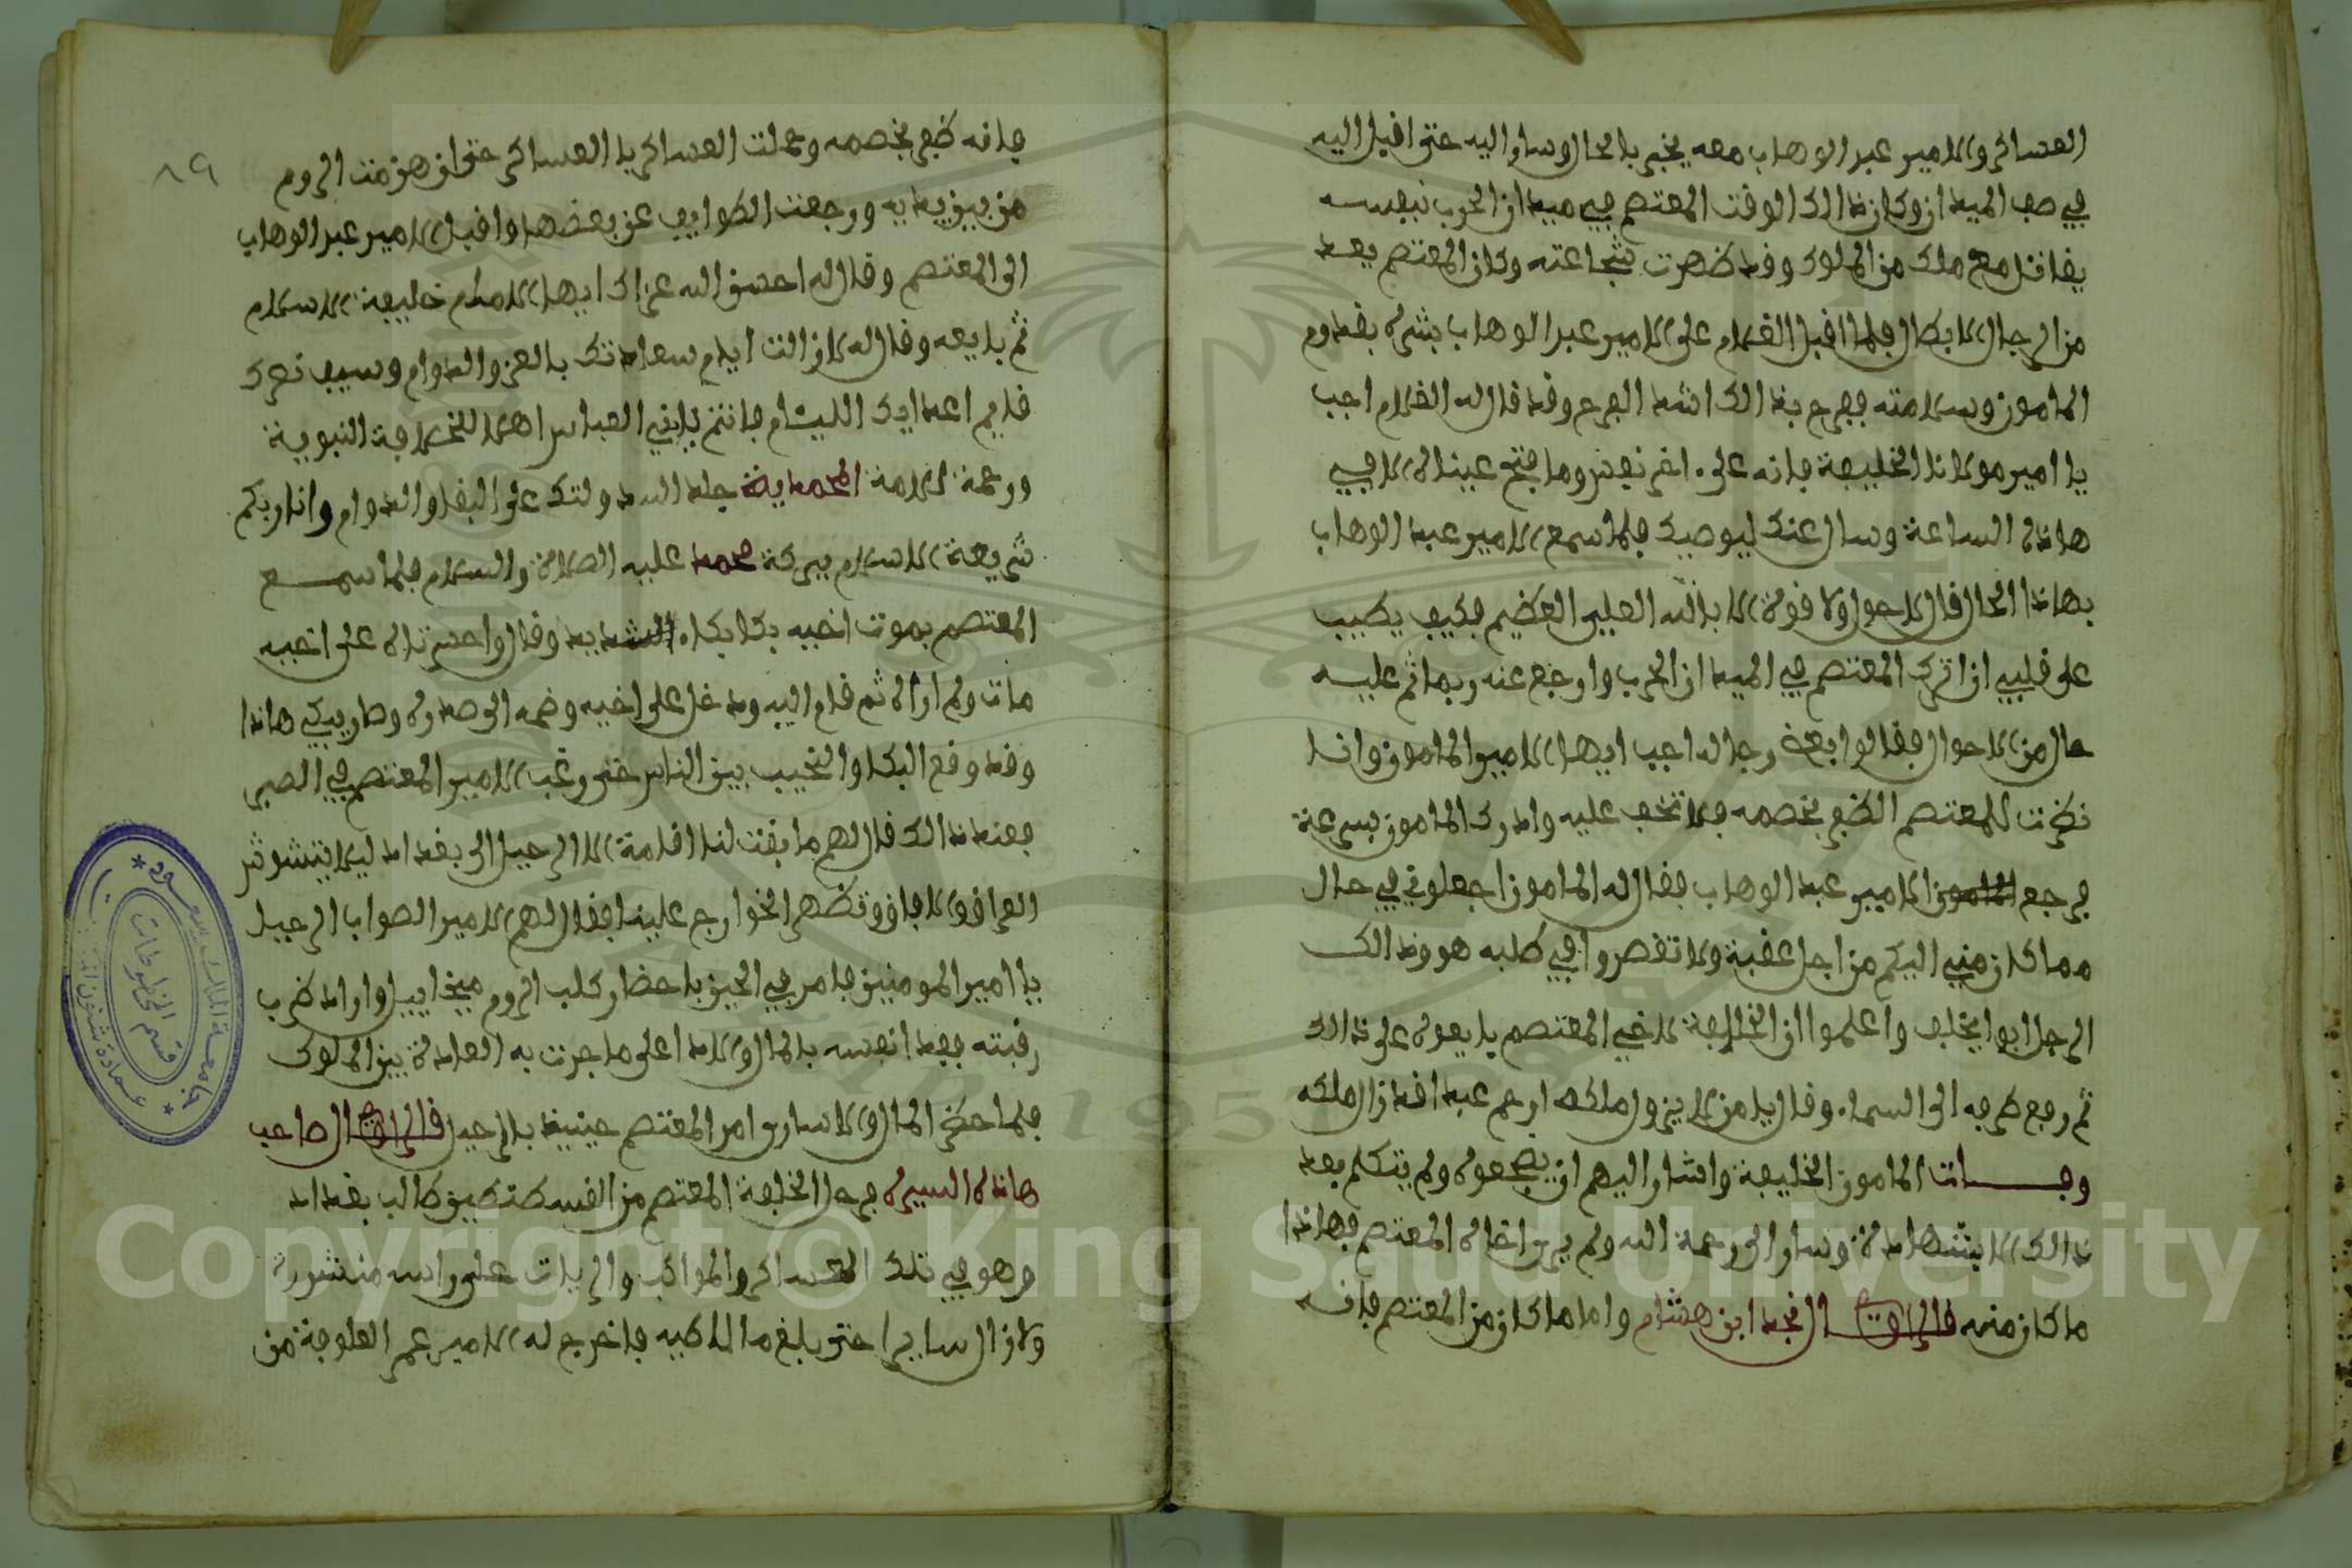 العساكر والامير عبد الوهاب معه يخبره بالحال وساروا اليه حتى اقبل اليه
في صف الميدان وكان ذالك الوقت المعتصم في ميدان الحرب بنفسه
يقاتل مع ملك من الملوك وقد ظهرت شجاعته وكان المعتصم يعد
من الرجال الابطال فلما اقبل الغلام على الامير عبد الوهاب بشره بقدوم
المامون وسلامته ففرح بذالك اشد الفرح وقد قال له الغلام اجب
يا امير مولانا الخليفة فانه على اخر نفس وما فتح عيناه الا في
هاذه الساعة وسال عنك ليوصيك فلما سمع الامير عبد الوهاب
بهاذا الحال قال لا حول ولا قوة الا بالله العلي العظيم فكيف يطيب
على قلبي ان اترك المعتصم في الميدان الحرب وارجع عنه ربما تم عليه
حال من الاحوال فقالوا بعض رجاله اجب ايها الامير المامون وانا
نظرت للمعتصم الظفر بخصمه فلا تخف عليه وادرك المامون بسرعة
فرجع المامون الامير عبد الوهاب فقال له المامون اجعلوني في حال
مما كان مني اليكم من اجل عقبة ولا تقصروا في طلبه هو وذالك
الرجل ابوا يخلف واعلموا ان الخليفة لاخي المعتصم بايعوه على ذالك
ثم رفع طرفه الى السماء وقال يا من لا يزول ملكه ارحم عبدا قد زال ملكه
ومات المامون الخليفة واشار اليهم ان يضجعوه ولم يتكلم بعد
ذالك الا بشهادة وسار الى رحمة الله ولم يرى اخاه المعتصم فهاذا
ما كان منه قال الراوي نجد ابن هشام واما ما كان من المعتصم فانه
٨٩
فانه ظفر بخصمه وحملت العساكر يا العساكر حتى انهزمت الروم
من بين يديه ورجعت الطوايف عن بعضها واقبل الامير عبد الوهاب
الى المعتصم وقال له احسن الله عزاك ايها الامام خليفة الاسلام
ثم بايعه وقال له لا زالت ايام سعادتك بالعز والدوام وسيف نصرك
في اعدايك الليام فانتم يا بني العباس اهلا للخلافة النبوية
ورحمة للامة المحمدية جلد الله دولتك على البقا والدوام وانار بكم
شريعة الاسلام ببركة محمد عليه الصلاة والسلام فلما سمع
المعتصم بموت اخيه بكا بكاء الشديد وقال واحسرتاه على اخيه
مات ولم اراه ثم قام اليه ودخل على اخيه وضمه الى صدره وصار يبكي هاذا
وقد وقع البكا والنحيب بين الناس حتى رغب الامير المعتصم في الصبر
فعند ذالك قال لهم ما بقت لنا اقامة الا الرحيل الى بغداد ليلا يتشوش
العراق والافاق وتظهر الخوارج علينا فقال لهم الامير الصواب الرحيل
يا امير المومنين فامر في الحين باحضار كلب الروم ميخاييل واراد ضرب
رقبته ففدا نفسه بالمال والادا على ما جرت به العادة بين الملوك
فلما حضر المال والاسارى امر المعتصم حينيذ بالرحيل قال الراوي صاحب
هاذه السيرة فرحل الخليفة المعتصم من القسطنطين طالب بغداد
وهو في تلك العساكر والمواكب والرايات على راسه منشورة
ولا زال سايرا حتى بلغ ملاطيه فاخرج له الامير عمر العلوفة من
جامعة الملك سعود
قسم المخطوطات
عمادة شئون المكتبات
Copyright © King Saud University